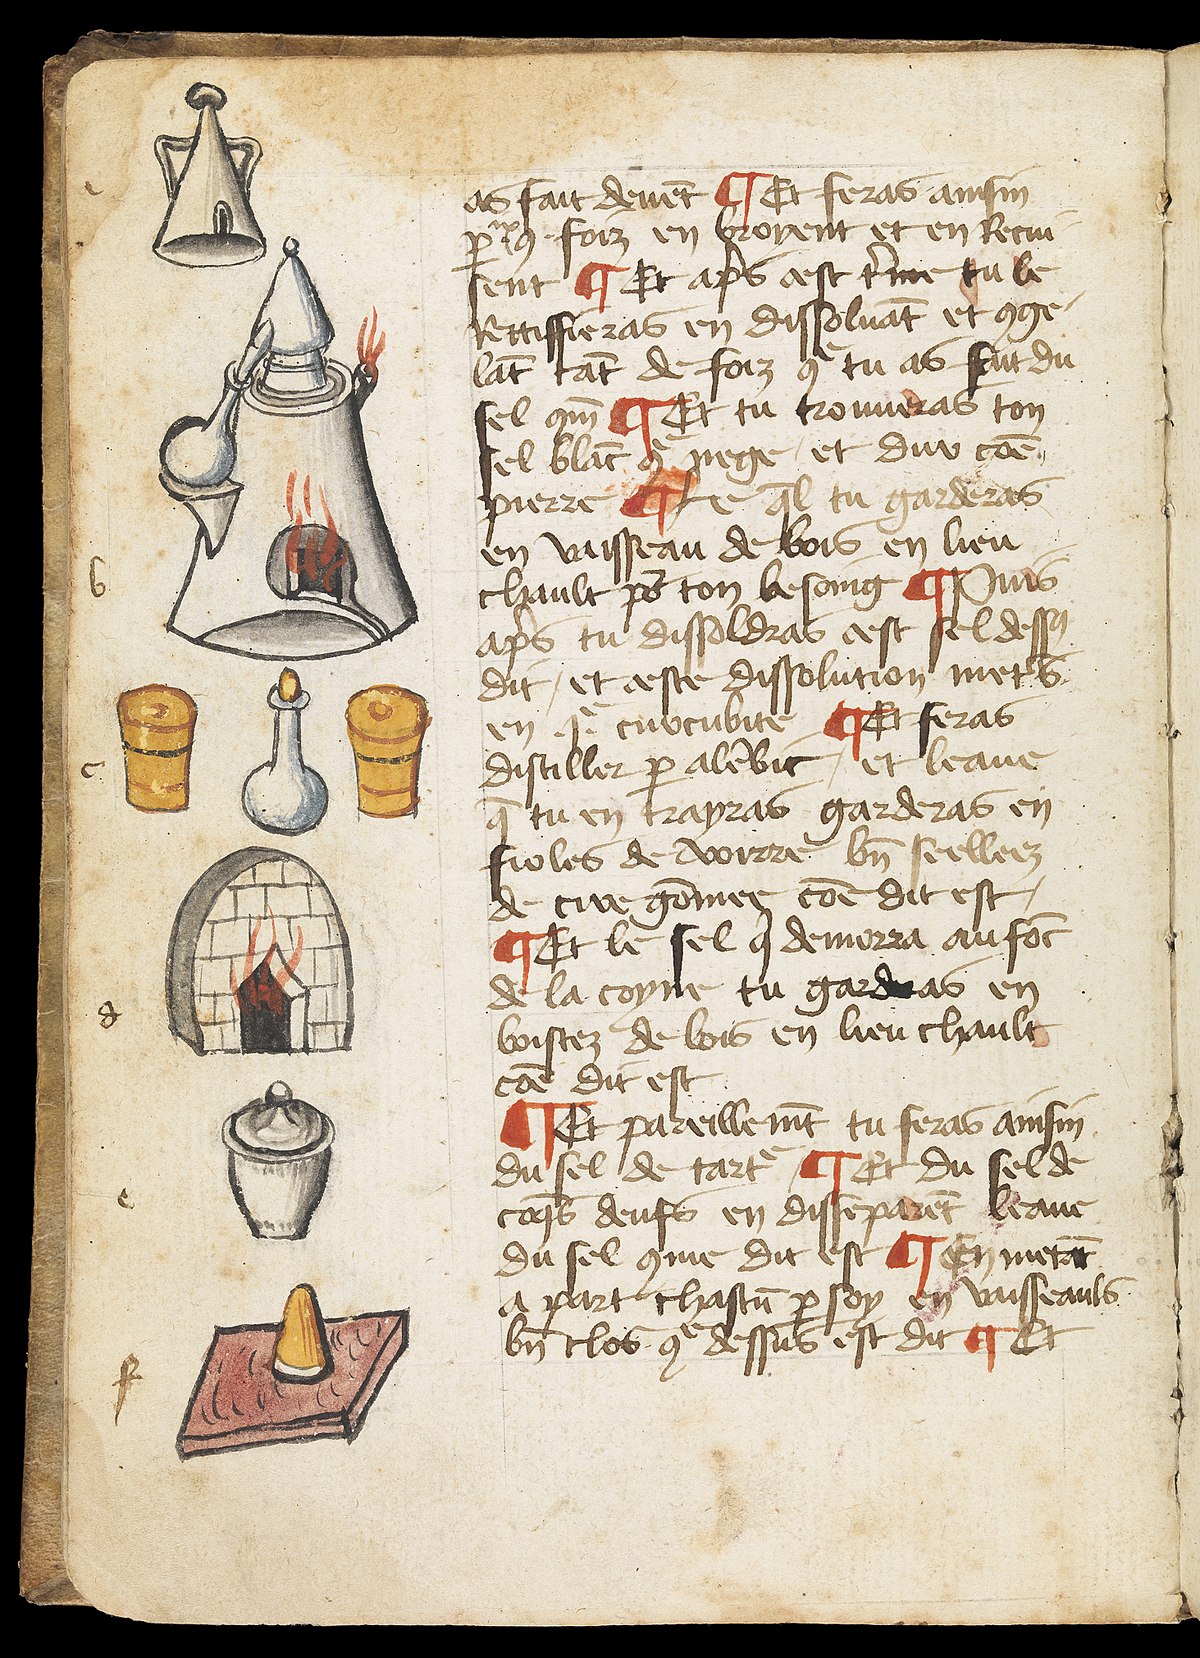 as fait devēt ¶ Et feras ainsin
p ix9 foiz en broyent et en Recui
sent ¶ Et ap̄s cest t'me tu le
Rettiffieras en dissoluāt et 9ge
lāt tāt de foiz 9e tu as fait du
sel qm̄ ¶ Et tu trouveras ton
sel blāc 9e nege / et dur cōe
pierre ¶ Le q̄l tu garderas
en vaisseau de bois en lieu
chault po' ton besoing ¶ Puis
ap̄s tu dissoldras cest sel dess9
dit / et ceste dissolution metr̄s
en .je. curcubite ¶ Et feras
distiller p alēbic / et leaue
q̄ tu en trayras garderas en
fioles de voirre bn̄ seelleez
de cire gōmee cōe dit est /
¶ Et le sel q̄ demorra au fōs
de la coyne tu garderas en
boistez de bois en lieu chault
cōe dit est
¶ Et pareillemt̄ tu feras ainsin
du sel de tarte / ¶ Et du sel de
coq̄s deufs en disseparēt leaue
du sel 9me dit est ¶ En metāt
a part chascū p soy en vaisseauls
bn̄ clos 9e dessus est dit ¶ Et
b
c
d
e
f